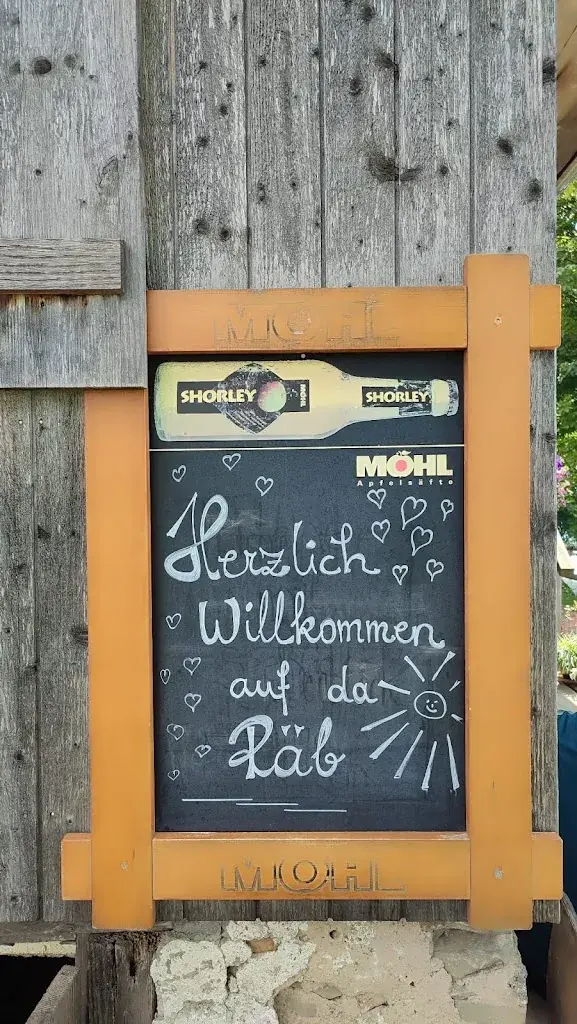 MÖHL
SHORLEY MÖHL SHORLEY
MÖHL
Apfelsäfte
Herzlich
Willkommen
auf da
Räb
MÖHL